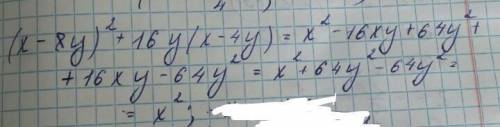 (x-8y)²+16y(x-4y)=x²-16xy+64y²+
+16xy-64y²=x²+64y²-64y²=
=x²;